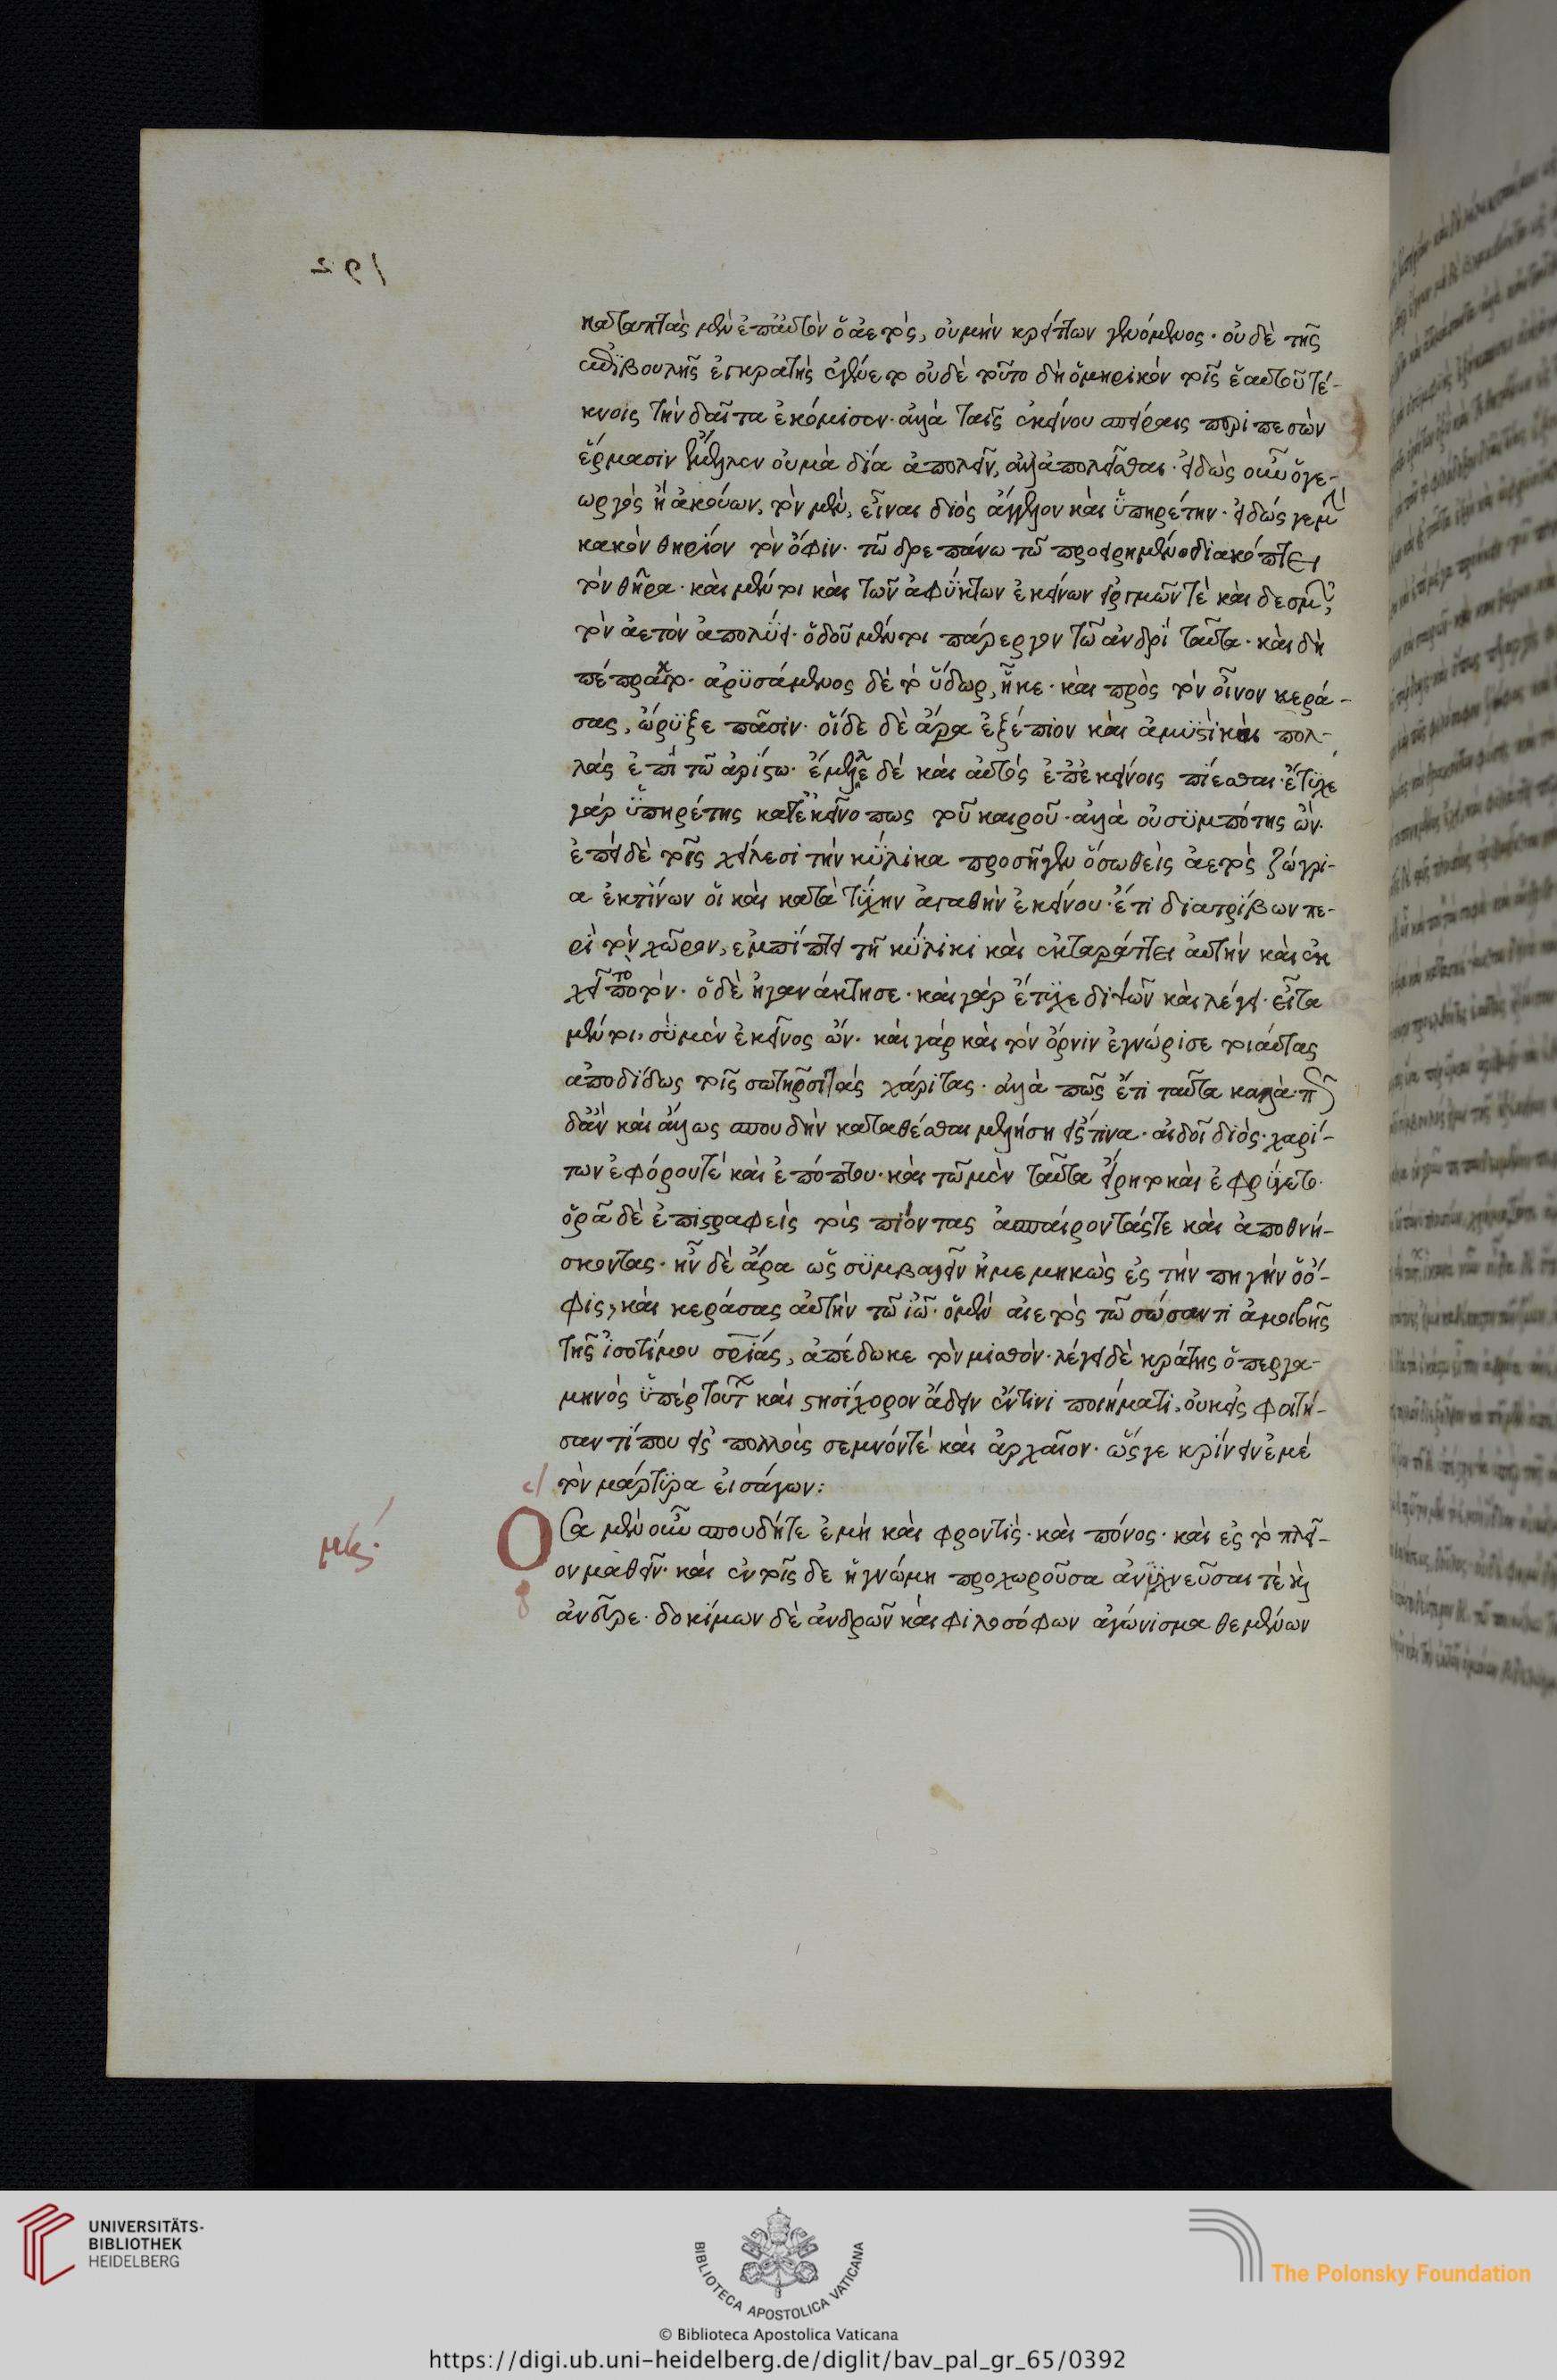 192
καταπτὰς μὲν ἐπ' αὐτὸν ὁ ἀετὸς, οὐ μὴν κρείττων γενόμενος· οὐδὲ τῆς
ἐπιβουλῆς ἐγκρατὴς ἐγένετο οὐδὲ τοῦτο δὴ ὁμηρικὸν τοῖς ἑαυτοῦ τέ-
κνοις τὴν δαῖτα ἐκόμισεν· ἀλλὰ ταῖς ἐκείνου σπείραις περιπεσὼν
ἕρμασιν ἔμελλεν οὐ μὰ δία ἀπολεῖν, ἀλλ' ἀπολεῖσθαι· εἰδὼς οὖν ὁ γε-
ωργὸς ἢ ἀκούων, τὸν μὲν, εἶναι διὸς ἄγγελον καὶ ὑπηρέτην· εἰδώς γε μὴν
κακὸν θηρίον τὸν ὄφιν· τῶ δρεπάνω τῶ προειρημένω διακόπτει
τὸν θῆρα· καὶ μέντοι καὶ τῶν ἀφύκτων ἐκείνων εἱργμῶν τὲ καὶ δεσμῶν,
τὸν ἀετὸν ἀπολύει· ὁδοῦ μέντοι πάρεργον τῶ ἀνδρὶ ταῦτα· καὶ δὴ
πέπρακτο· ἀρυσάμενος δὲ τὸ ὕδωρ, ἧκε· καὶ πρὸς τὸν οἶνον κερά-
σας, ὤρυξε πᾶσιν· οἵδε δὲ ἄρα ἐξέπιον καὶ ἀμυστὶ καὶ πολ-
λὰς ἐπὶ τῶ ἀρίστω· ἔμελλε δὲ καὶ αὐτὸς ἐπ' ἐκείνοις πίεσθαι· ἔτυχε
γὰρ ὑπηρέτης κατ' ἐκεῖνο πως τοῦ καιροῦ· ἀλλὰ οὐ συμπότης ὤν·
ἐπεὶ δὲ τοῖς χείλεσι τὴν κύλικα προσῆγεν ὁ σωθεὶς ἀετὸς ζώγρι-
α ἐκτίνων οἱ καὶ κατὰ τύχην ἀγαθὴν ἐκείνου· ἔτι διατρίβων πε-
ρὶ τὸν χῶρον, ἐμπίπτει τῆ κύλικι καὶ ἐκταράττει αὐτὴν καὶ ἐκ
χεῖ τὸ ποτόν· ὁ δὲ ἠγανάκτησε· καὶ γὰρ ἔτυχε διψῶν καὶ λέγει· εἶτα
μέντοι, σὺ μὲν ἐκεῖνος ὤν· καὶ γὰρ καὶ τὸν ὄρνιν ἐγνώρισε τοιαύτας
ἀποδίδως τοῖς σωτῆρσι τὰς χάριτας· ἀλλὰ πῶς ἔτι ταῦτα καλὰ· πῶς
δ' ἂν καὶ ἄλλως σπουδὴν καταθέσθαι μελλήση εἴς τινα· αἰδοῖ διὸς· χαρί-
των ἐφόρου τὲ καὶ ἐπόπτου· καὶ τῶ μὲν ταῦτα εἴρητο καὶ ἐφρύγετο·
ὁρᾶ δὲ ἐπιστραφεὶς τοὶς πιόντας ἀσπαίροντάς τε καὶ ἀποθνή-
σκοντας· ἦν δὲ ἄρα ὡς συμβαλεῖν ἠμεμηκὼς ἐς τὴν πηγὴν ὁ ὄ-
φις, καὶ κεράσας αὐτὴν τῶ ἰῶ· ὁ μὲν αἰετὸς τῶ σώσαντι ἀμοιβῆς
τῆς ἰσοτίμου σρίας, ἀπέδωκε τὸν μισθὸν· λέγει δὲ κράτης ὁ περγα-
μηνὸς ὑπὲρ τούτ καὶ στησίχορον ἄδειν ἔν τινι ποιήματι, οὐκ εἰς φοιτή-
σαν τί που εἰς πολλοὺς σεμνόν τὲ καὶ ἀρχαῖον· ὥς γε κρίνειν ἐμὲ
τὸν μάρτυρα εἰσάγων:
μς· Ὅσα μὲν οὖν σπουδή τε ἐμὴ καὶ φροντὶς· καὶ πόνος· καὶ ἐς τὸ πλεῖ-
ον μαθεῖν· καὶ ἐν τοῖς δε ἡ γνώμη προχωροῦσα ἀνίχνευσαί τὲ καὶ
ἀνεῦρε· δοκίμων δὲ ἀνδρῶν καὶ φιλοσόφων ἀγώνισμα θεμένων
UNIVERSITÄTS-
BIBLIOTHEK
HEIDELBERG
BIBLIOTECA APOSTOLICA VATICANA
The Polonsky Foundation
© Biblioteca Apostolica Vaticana
https://digi.ub.uni-heidelberg.de/diglit/bav_pal_gr_65/0392